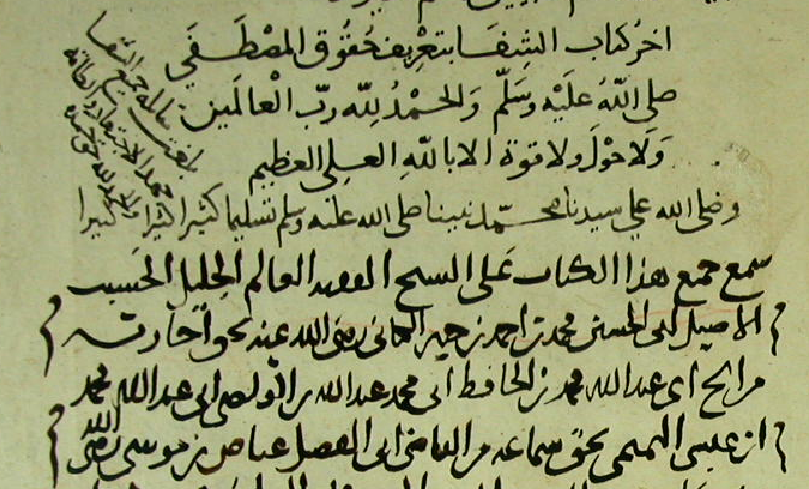 اخر كتاب الشفا بتعريف حقوق المصطفى
صلى الله عليه وسلم والحمد لله رب العالمين
ولا حول ولا قوة الا بالله العلي العظيم
وصلى الله على سيدنا محمد نبينا صلى الله عليه وسلم تسليما كثيرا كثيرا كثيرا
سمع جميع هذا الكتاب على الشيخ الفقيه العالم الجليل الحسيب
الاصيل ابى الحسين محمد بن احمد بن جبير الكنانى رضى الله عنه بحق اجازته
من الشيخ ابى عبد الله محمد بن الحافظ ابى محمد عبد الله ابى عبد الله محمد
ابن عيسى التميمى بحق سماعه من القاضى ابى الفضل عياض بن موسى رضى الله
بلغت مقابلة جميع الشفا